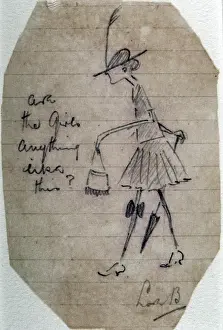 are
the Girls
anything
like
this?
Lord B